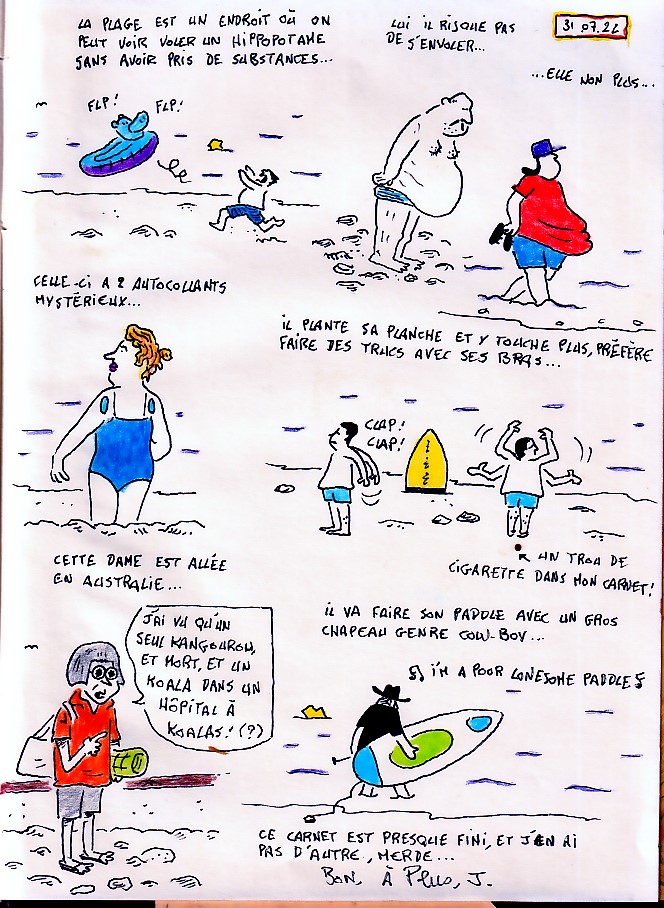 LA PLAGE EST UN ENDROIT OÙ ON
PEUT VOIR VOLER UN HIPPOPOTAME
SANS AVOIR PRIS DE SUBSTANCES...
LUI IL RISQUE PAS
DE S'ENVOLER...
31.07.22
...ELLE NON PLUS...
FLP! FLP!
CELLE-CI A 2 AUTOCOLLANTS
MYSTÉRIEUX...
IL PLANTE SA PLANCHE ET Y TOUCHE PLUS, PRÉFÈRE
FAIRE DES TRUCS AVEC SES BRAS...
CLAP!
CLAP!
UN TROU DE
CIGARETTE DANS MON CARNET!
CETTE DAME EST ALLÉE
EN AUSTRALIE...
J'AI VU QU'UN
SEUL KANGOUROU,
ET MORT, ET UN
KOALA DANS UN
HÔPITAL À
KOALAS! (?)
IL VA FAIRE SON PADDLE AVEC UN GROS
CHAPEAU GENRE COW-BOY...
I'M A POOR LONESOME PADDLE
CE CARNET EST PRESQUE FINI, ET J'EN AI
PAS D'AUTRE, MERDE...
BON, À PLUS, J.